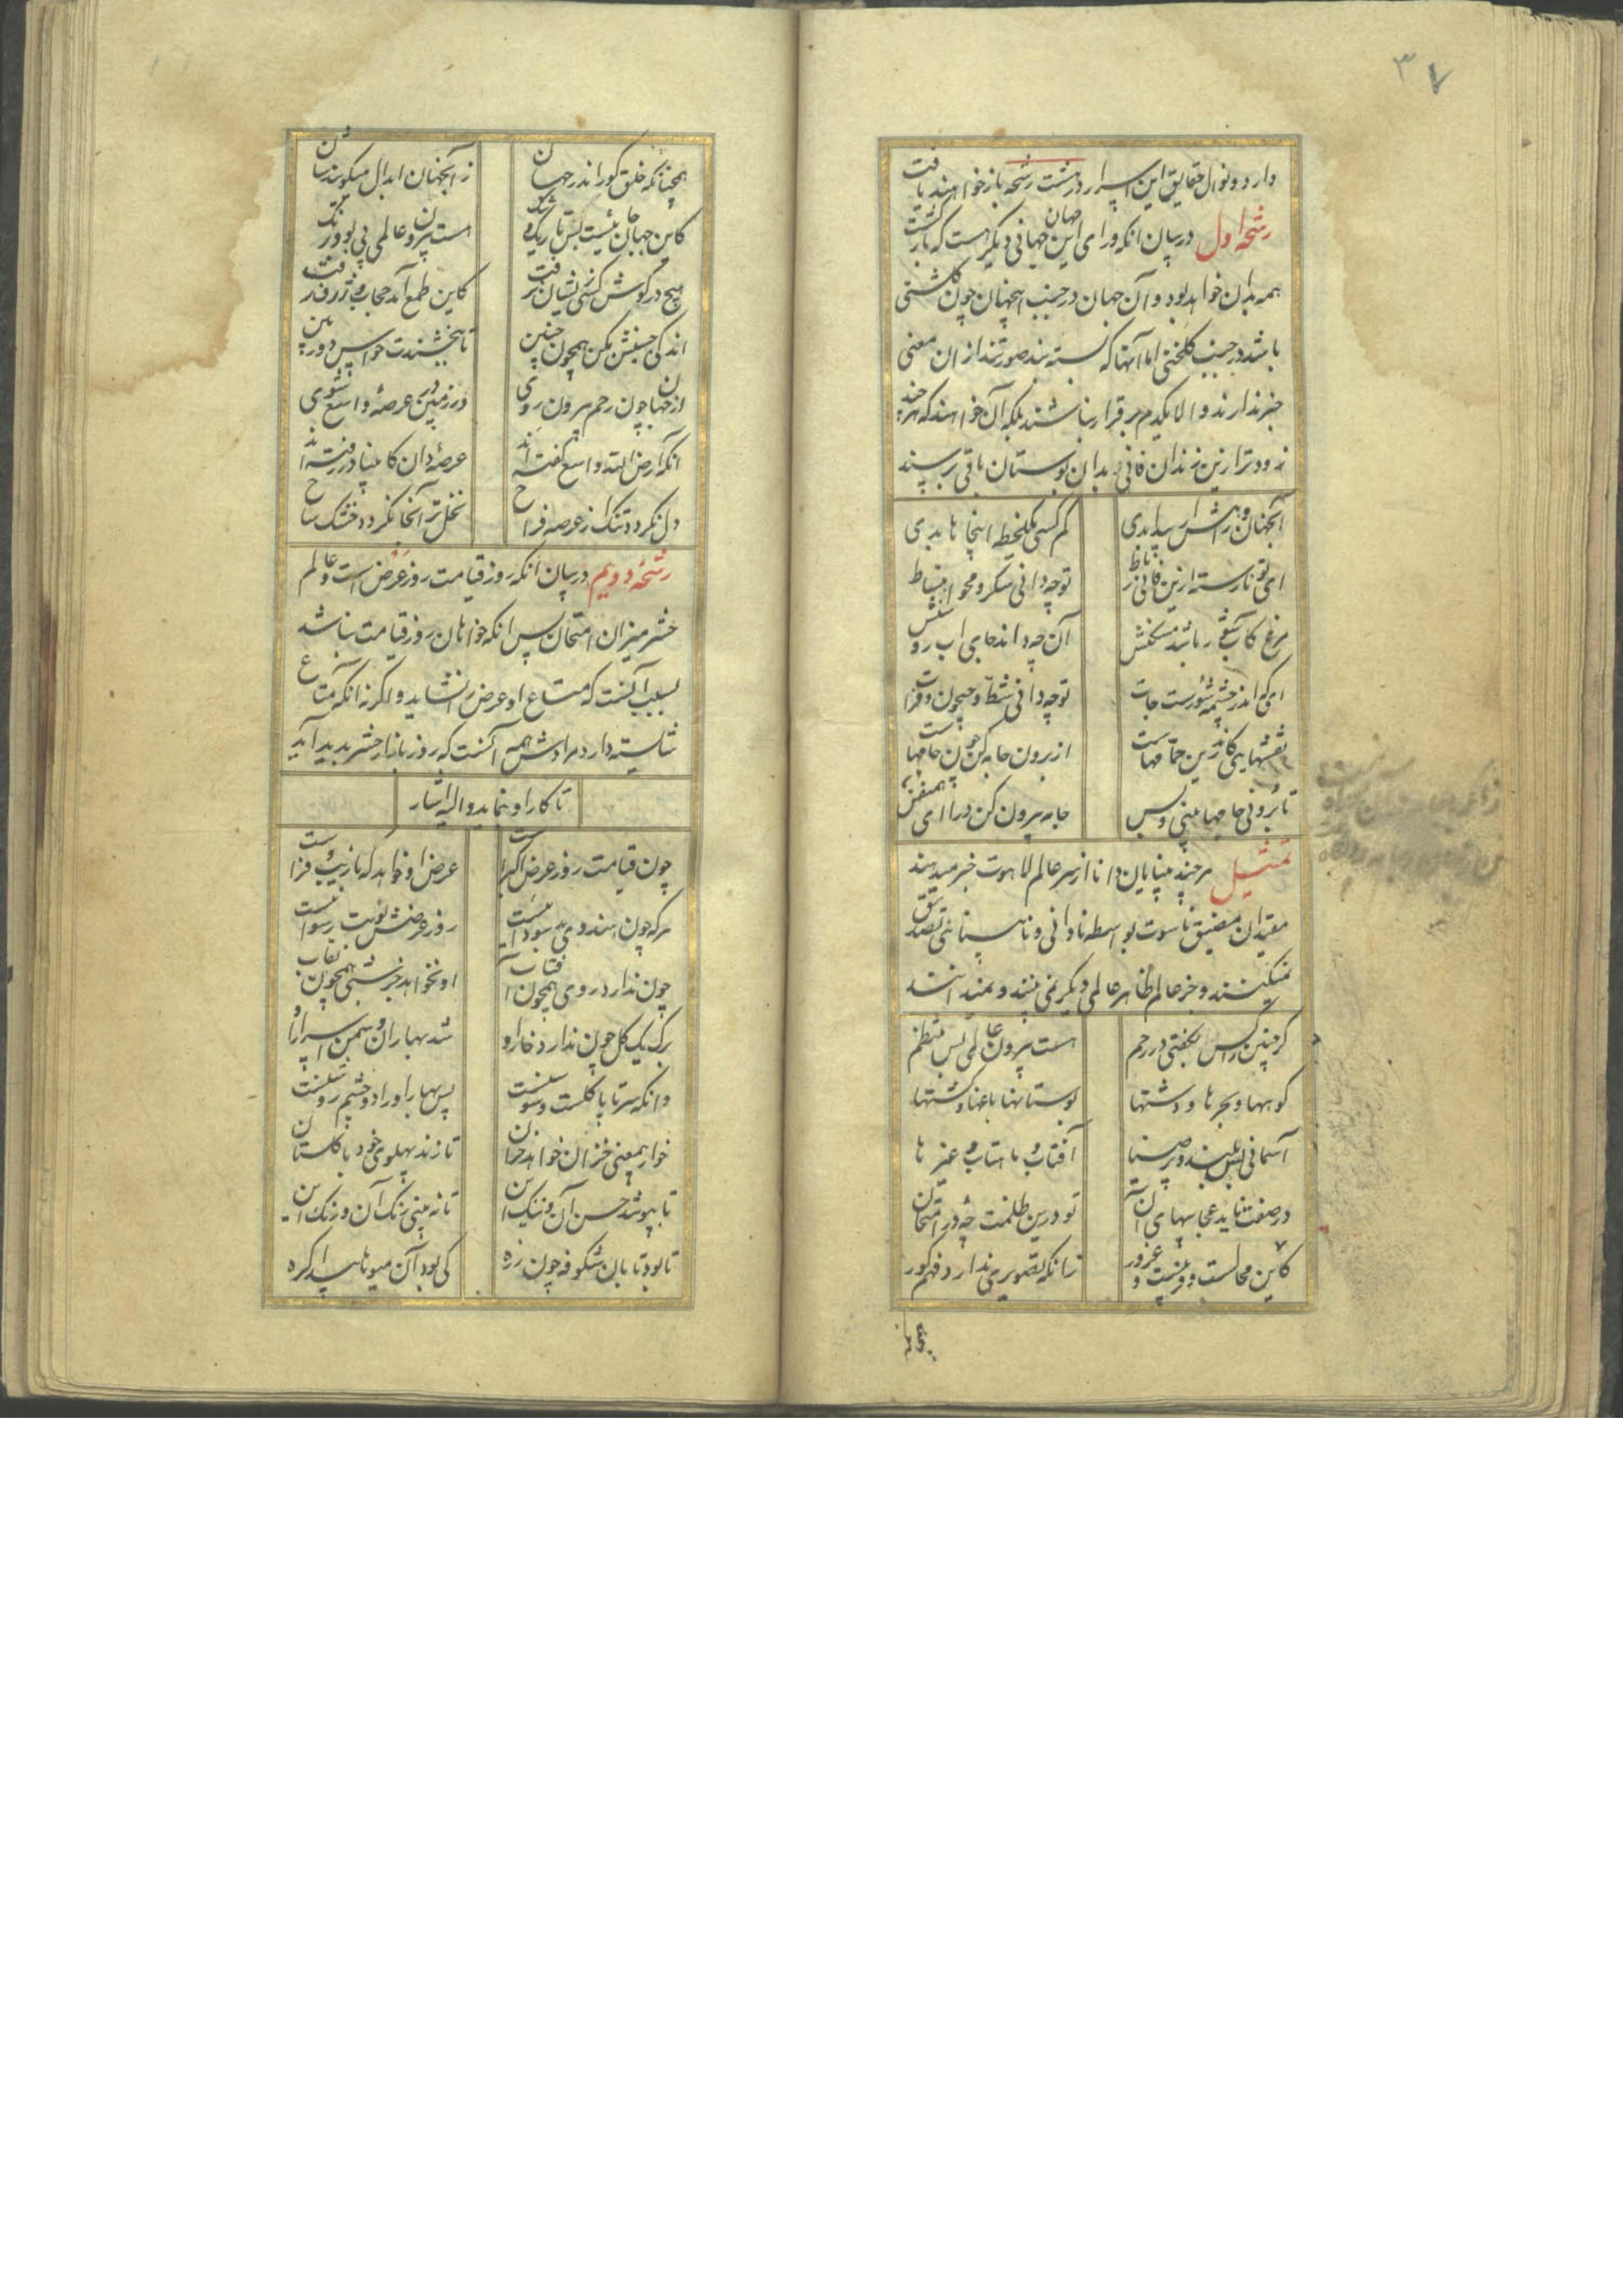 ۳۷
دارد و نوال حقایق این اسرار در هشت رشحه باز خواهند یافت
رشحه اول در بیان آنکه ورای این جهان جهانی دیگر هست که بازگشت
همه بدان خواهد بود و آن جهان در جنب اینجهان چون گلشنی
باشد در جنب گلخنی اما آنها که بسته بند صورتند از ان معنی
خبر ندارند و الا یکدم برقرار نباشند بلکه آن خواهند که هر چند
زودتر ازین زندان فانی بدان بوستان باقی برسند
آنجهان و راهش ار پیدا بدی کم کسی یکلحظه اینجا بدی
ای تو نارسته ازین فانی رباط تو چه دانی سکر و محو انبساط
مرغ کاب شور باشد مسکنش آن چه داند جای اب روشنش
ای که اندر چشمه شورست جات تو چه دانی شط و جیحون و فرات
نقشهایی کاندرین حمامهاست از برون جامه کن چون جامهاست
تا برونی جامها بینی و بس جامه بیرون کن درا ای همنفس
تمثیل هر چند بینایان دانا از سر عالم لاهوت خبر میدهند
مقیدان مضیق ناسوت بواسطه نادانی و نابینائی تصدیق
نمیکنند و جز عالم ظاهر عالمی دیگر نمی بینند و نمیدانند
گر جنین را کس بگفتی در رحم هست بیرون عالمی بس منتظم
کوهها و بحرها و دشتها بوستانها باغها و کشتها
آسمانی بس بلند و پر ضیا آفتاب و ماهتاب و
در صفت ناید عجایبهای آن تو درین ظلمت چه در امتحان
کاین محالست و فریبست و غرور زانکه تصویری ندارد فهم کور
همچنانکه خلق کور اندر جهان ز آنجهان ابدال میگویندشان
کاین جهان چاهیست بس تاریک و تنگ هست بیرون عالمی بی بو و رنگ
هیچ در گوش کسی زیشان نرفت کاین طمع آمد حجاب ژرف و زفت
اندکی جنبش بکن همچون جنین تا ببخشندت حواس دوربین
از جهان چون رحم بیرون روی در زمین عرصه واسع شوی
آنکه ارض الله واسع گفته اند عرصه دان کانبیا در رفته اند
دل نگردد تنگ ز عرصه فراخ نخل تر آنجا نگردد خشک شاخ
رشحه دویم در بیان آنکه روز قیامت روز عرض است و عالم
حشر میزان امتحان پس آنکه خواهان روز قیامت نباشد
بسبب آنست که متاع او عرض را نشاید و اگر زانکه متاع
شایسته دارد مرادش همه آنست که روز بازار حشر پدید آید
تا کار او نماید والیه اشار
چون قیامت روز عرض اکبرست عرض او خواهد که با زیب و فرست
هر که چون هندوی بد سودائیست روز عرضش نوبت رسوائیست
چون ندارد روی همچون آفتاب او نخواهد جز شبی همچون نقاب
برگ یک گل چون ندارد خار او شد بهاران دشمن اسرار او
وانکه سر تا پا گلست و سوسنست پس بهار او را دو چشم روشنست
خار بیمعنی خزان خواهد خزان تا زند پهلوی خود با گلستان
تا بپوشد حسن آن و ننگ این تا نه بینی رنگ آن و زنگ این
تا بود تابان شکوفه چون زره کی بود آن میوها پیدا گره